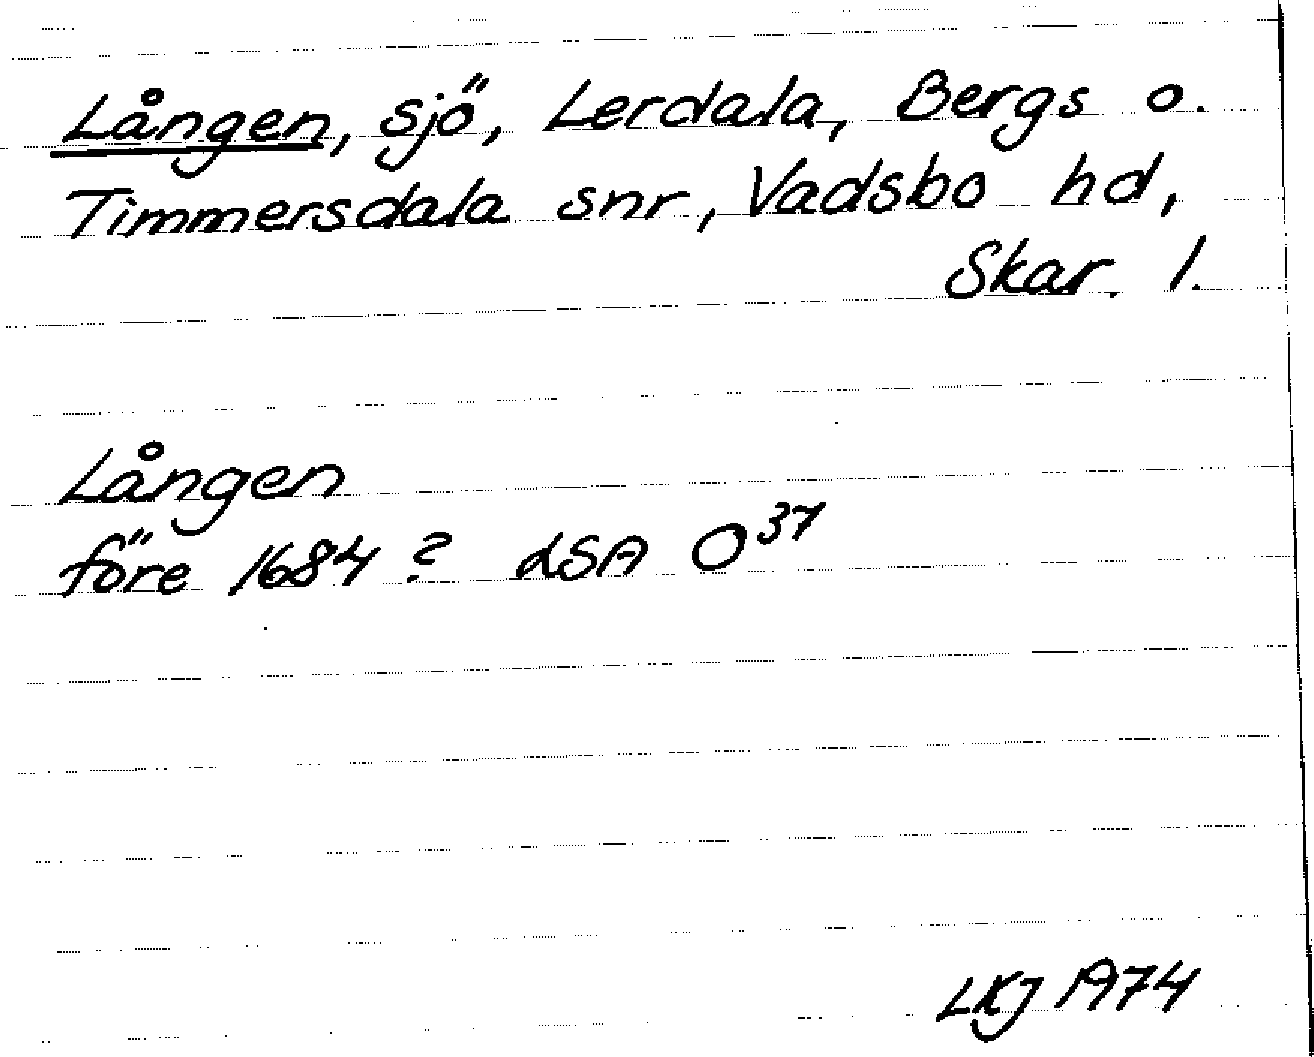 Lången, sjö, Lerdala, Bergs o.
Timmersdala snr, Vadsbo hd,
Skar. l.
Lången
före 1684 ? LSA O³⁷
LKJ 1974